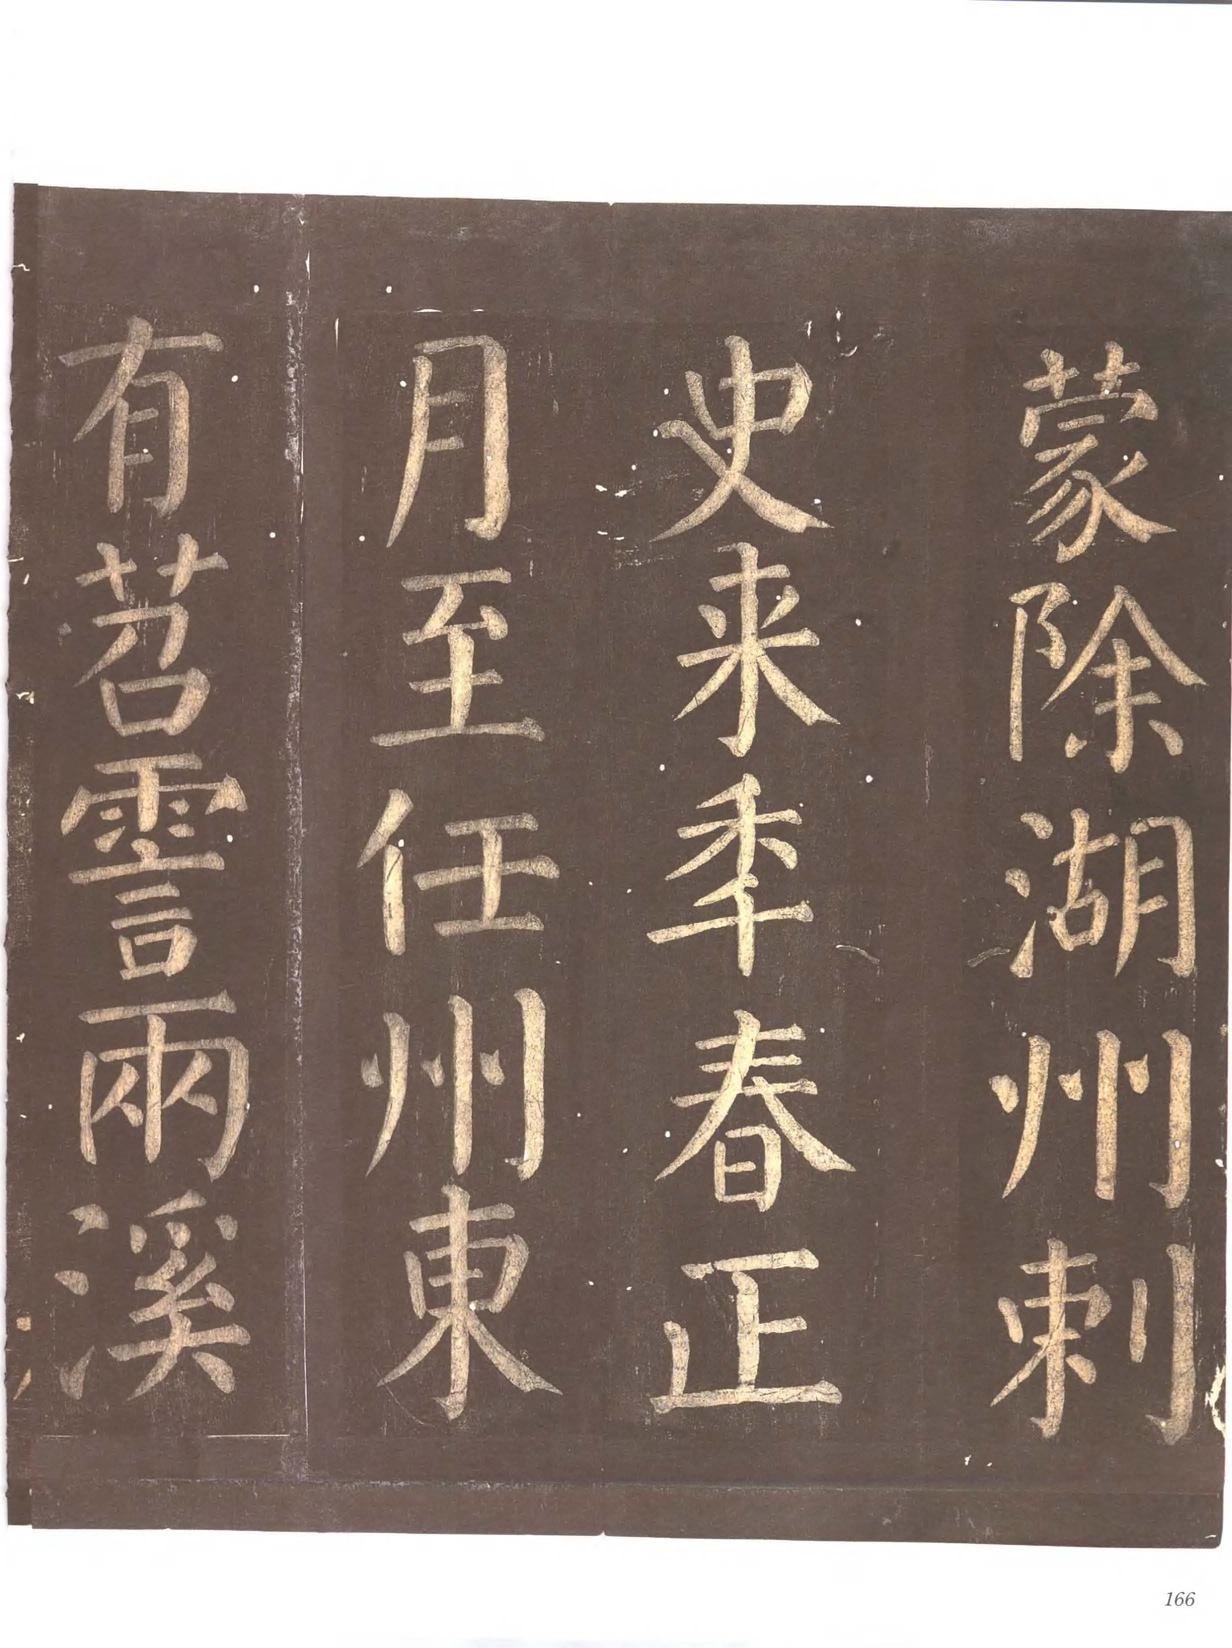 蒙除湖州刺
史来年春正
月至任州東
有苕霅兩溪
166